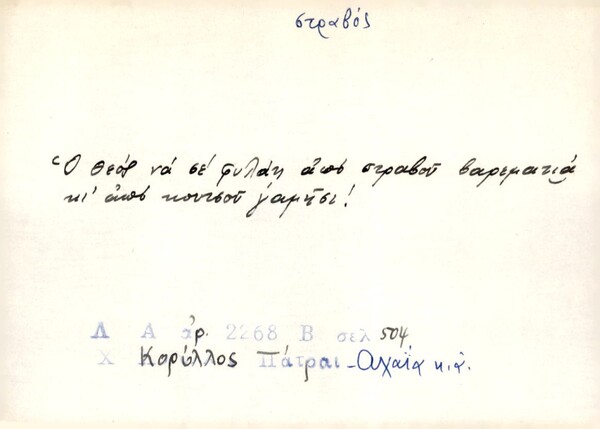 στραβός
Ὁ Θεός νά σέ φυλάῃ ἀπό στραβοῦ βαρεματιά
κι' ἀπό κουτσοῦ γαμήσι!
Λ Α ἀρ. 2268 Β σελ 504
Χ Κορύλλος Πάτραι - Ἀχαΐα κ.ἀ.